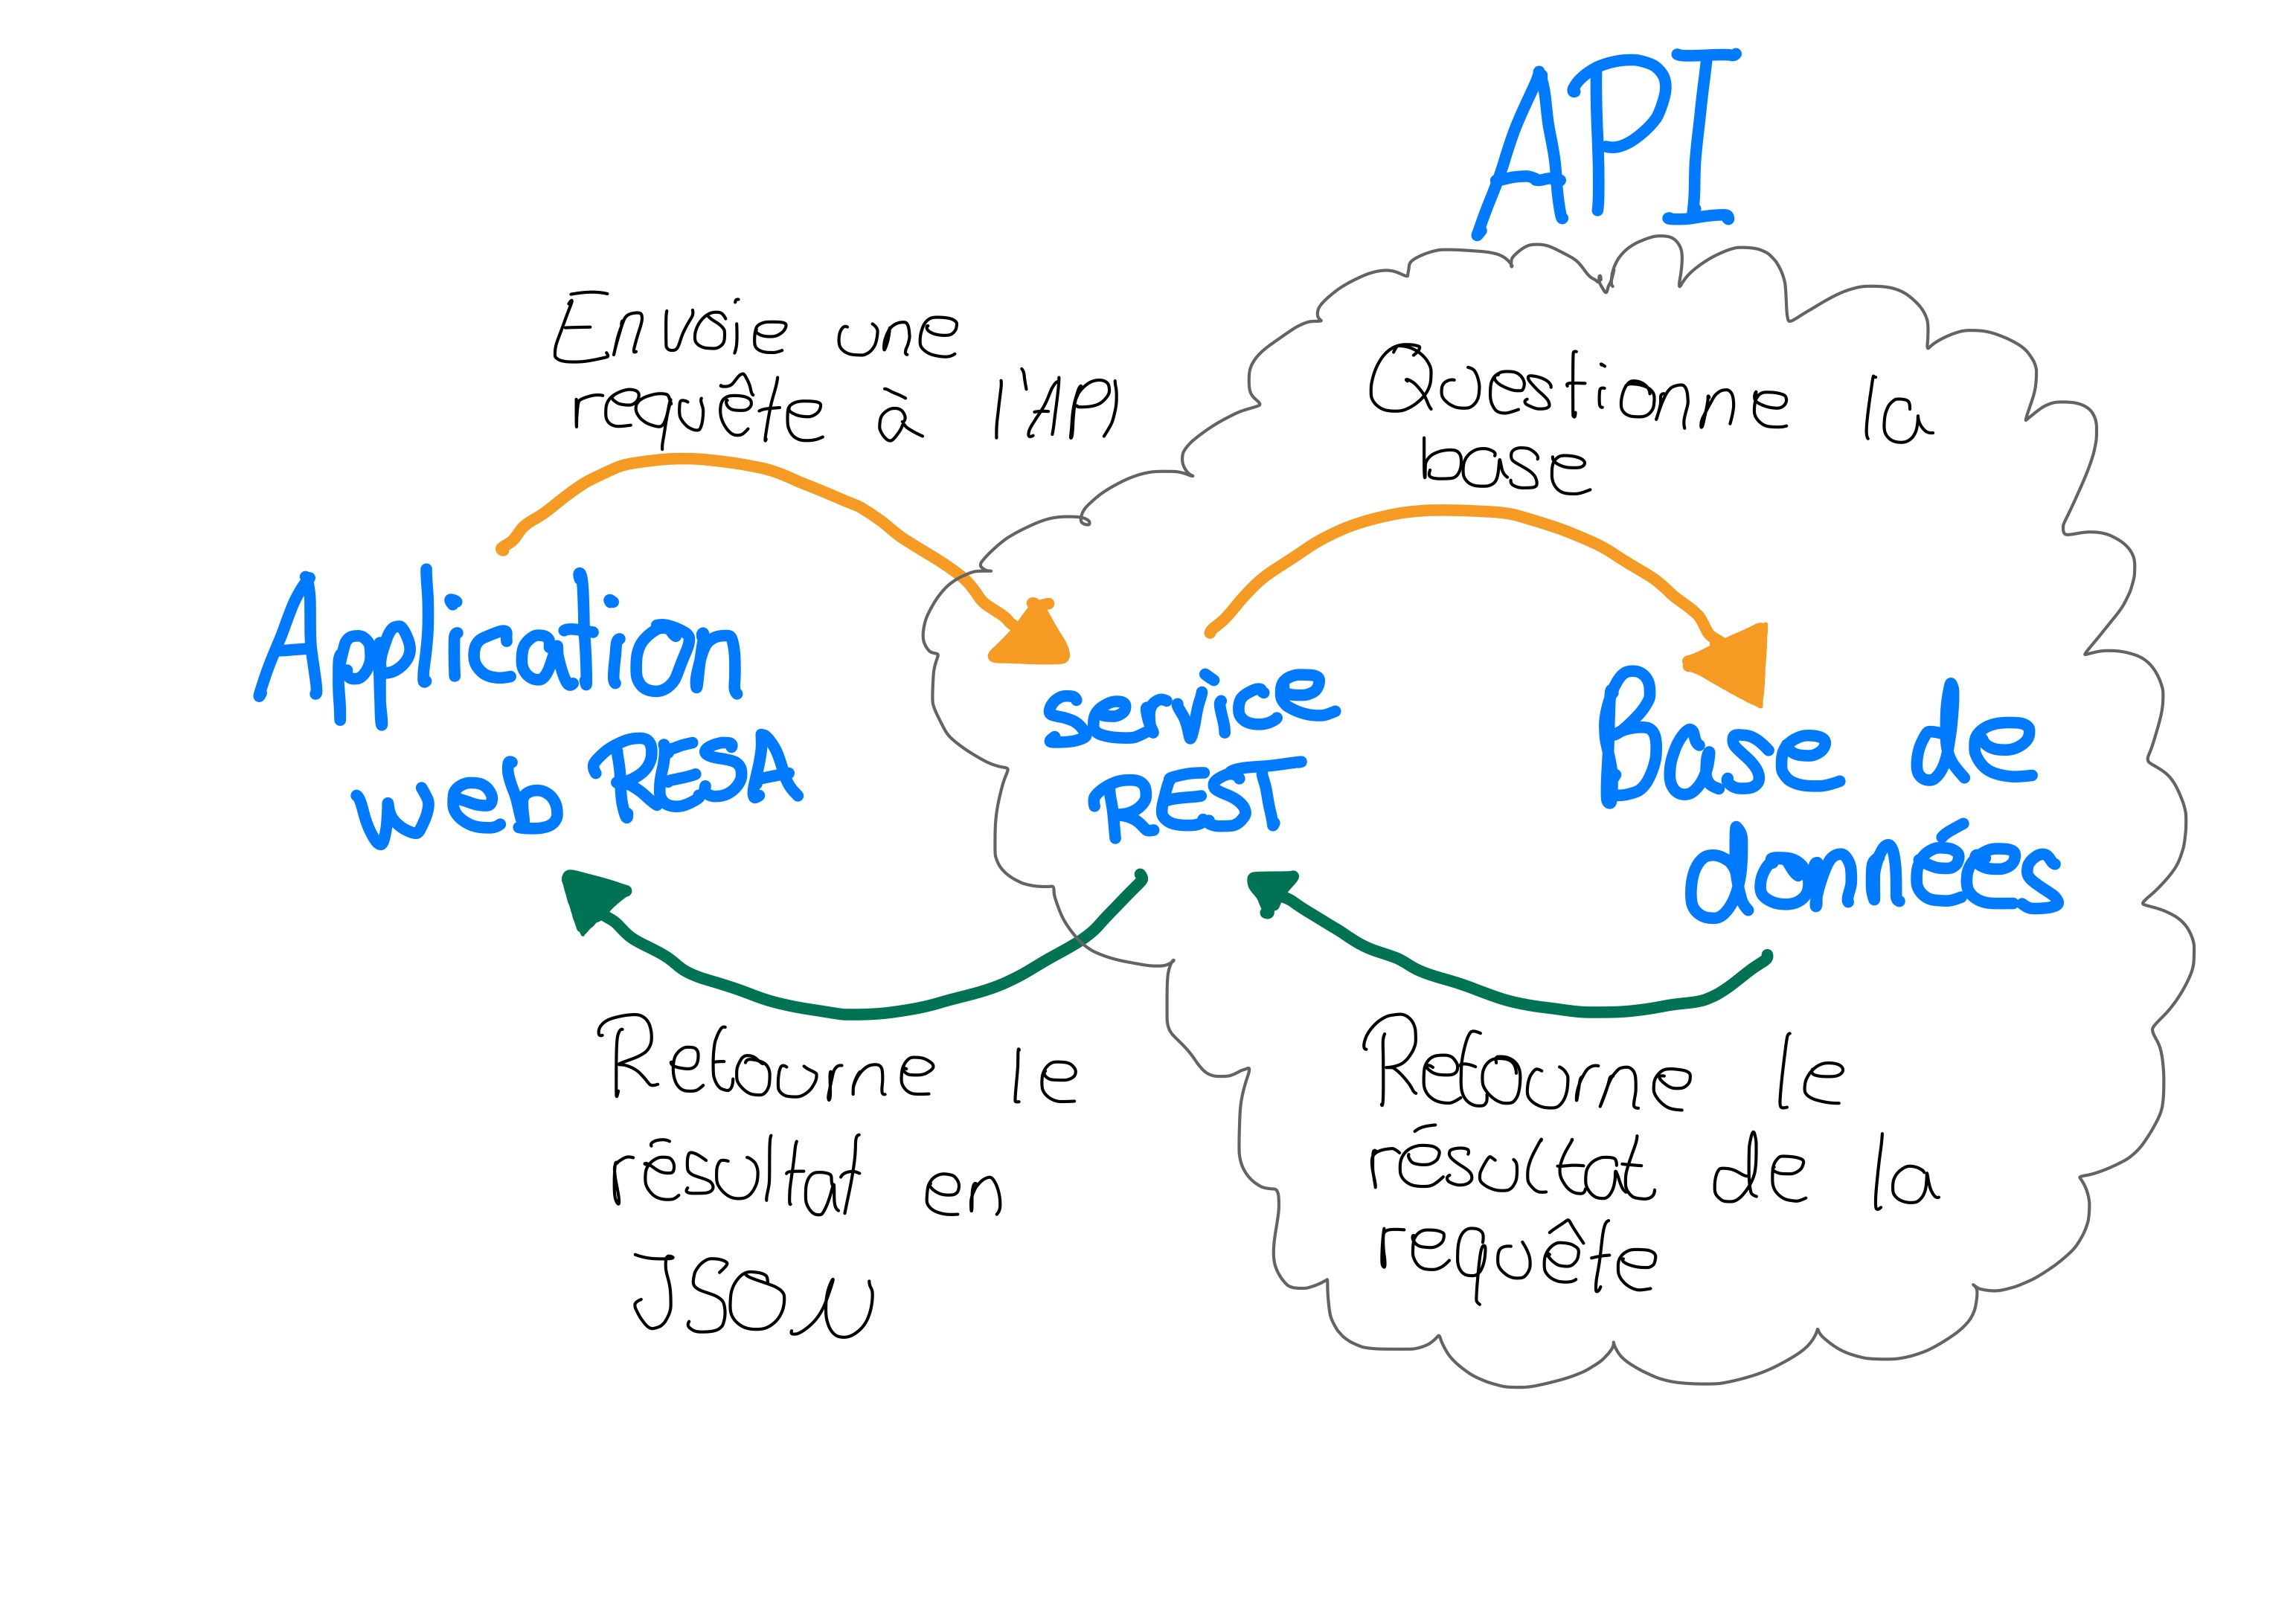 API
Envoie une
requête à l'API
Questionne la
base
Application
web RESA
service
REST
Base de
données
Retourne le
résultat en
JSON
Retourne le
résultat de la
requête